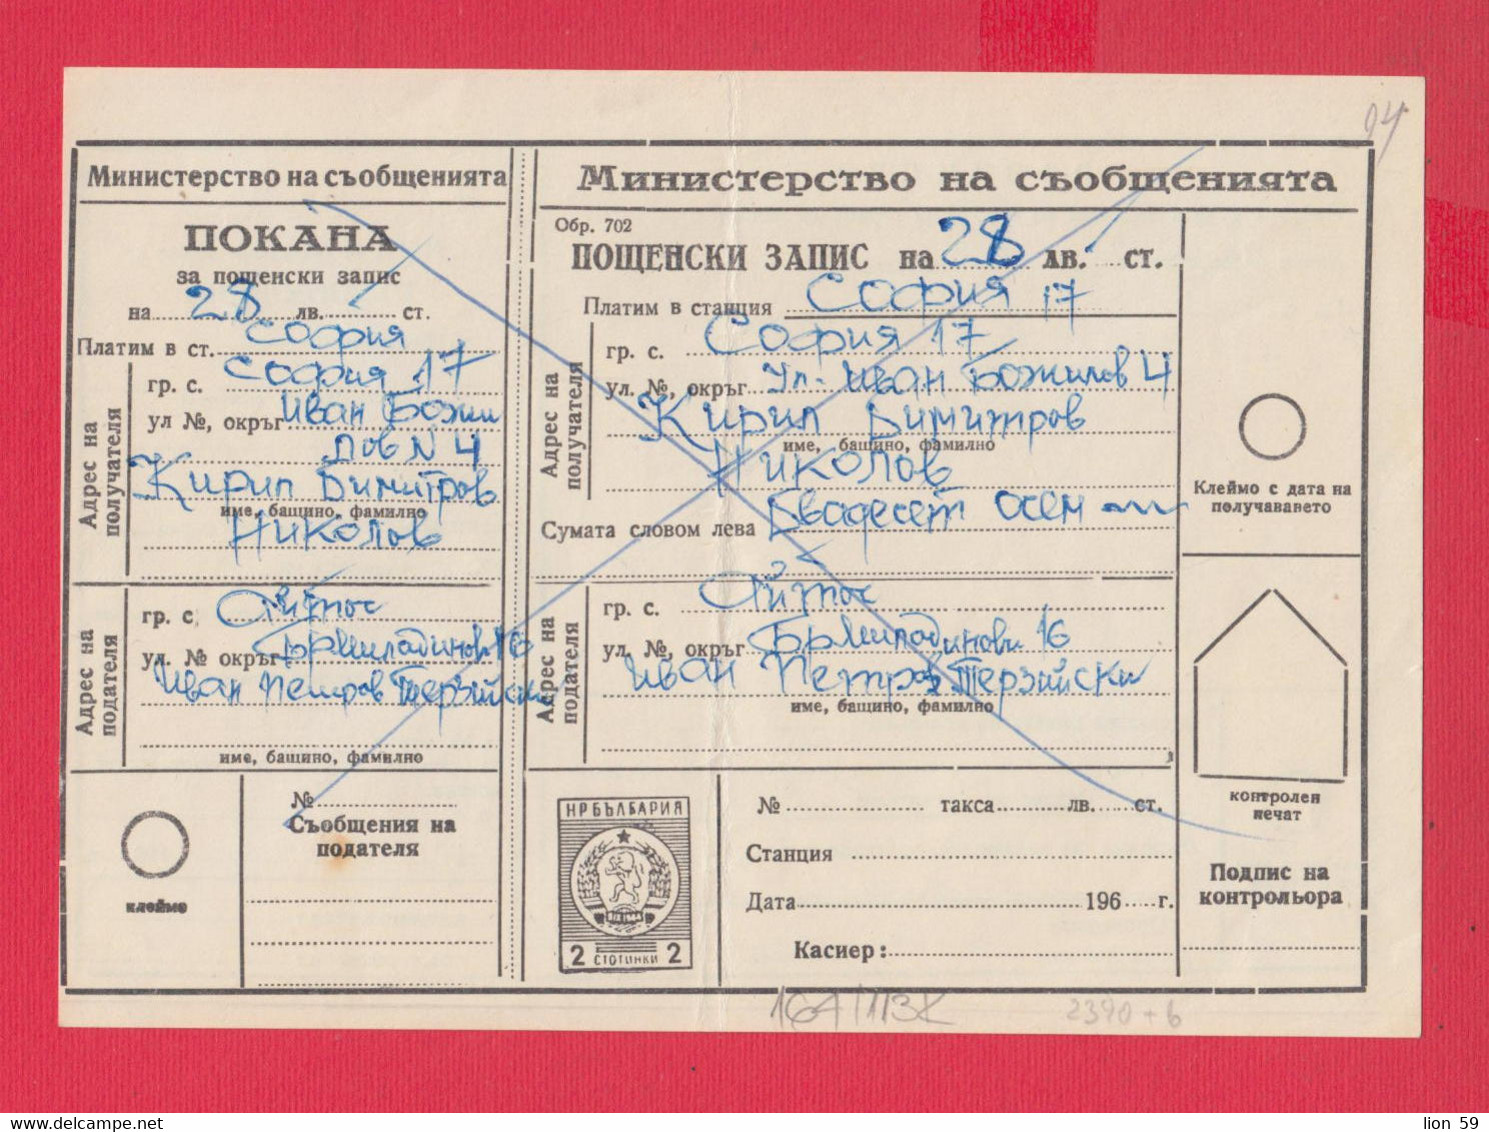 94
Министерство на съобщенията
ПОКАНА
за пощенски запис
на 28 лв. ст.
Платим в ст. София
гр. с. София 17
ул №, окръг Иван Божи
лов N 4
Адрес на получателя
Кирил Димитров
име, бащино, фамилно
Николов
гр. с. Айтос
ул. № окръг Бр Миладинови 16
Адрес на подателя
Иван Петров Терзийски
име, бащино, фамилно
клеймо
№
Съобщения на
подателя
Министерство на съобщенията
Обр. 702
ПОЩЕНСКИ ЗАПИС на 28 лв. ст.
Платим в станция София 17
гр. с. София 17
ул. №, окръг Ул. Иван Божилов 4
Адрес на получателя
Кирил Димитров
име, бащино, фамилно
Николов
Сумата словом лева Двадесет осем
гр. с. Айтос
ул. №, окръг Бр Миладинови 16
Адрес на подателя
Иван Петров Терзийски
име, бащино, фамилно
НР БЪЛГАРИЯ
2 СТОТИНКИ 2
№ такса лв. ст.
Станция
Дата 196 г.
Касиер:
Клеймо с дата на
получаването
контролен
печат
Подпис на
контрольора
164/113К
2390 + 6
lion 59